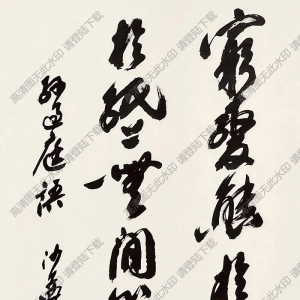 窮變態於
於紙上無間心
孫過庭語 沙孟
高清图无此水印 请登陆下载